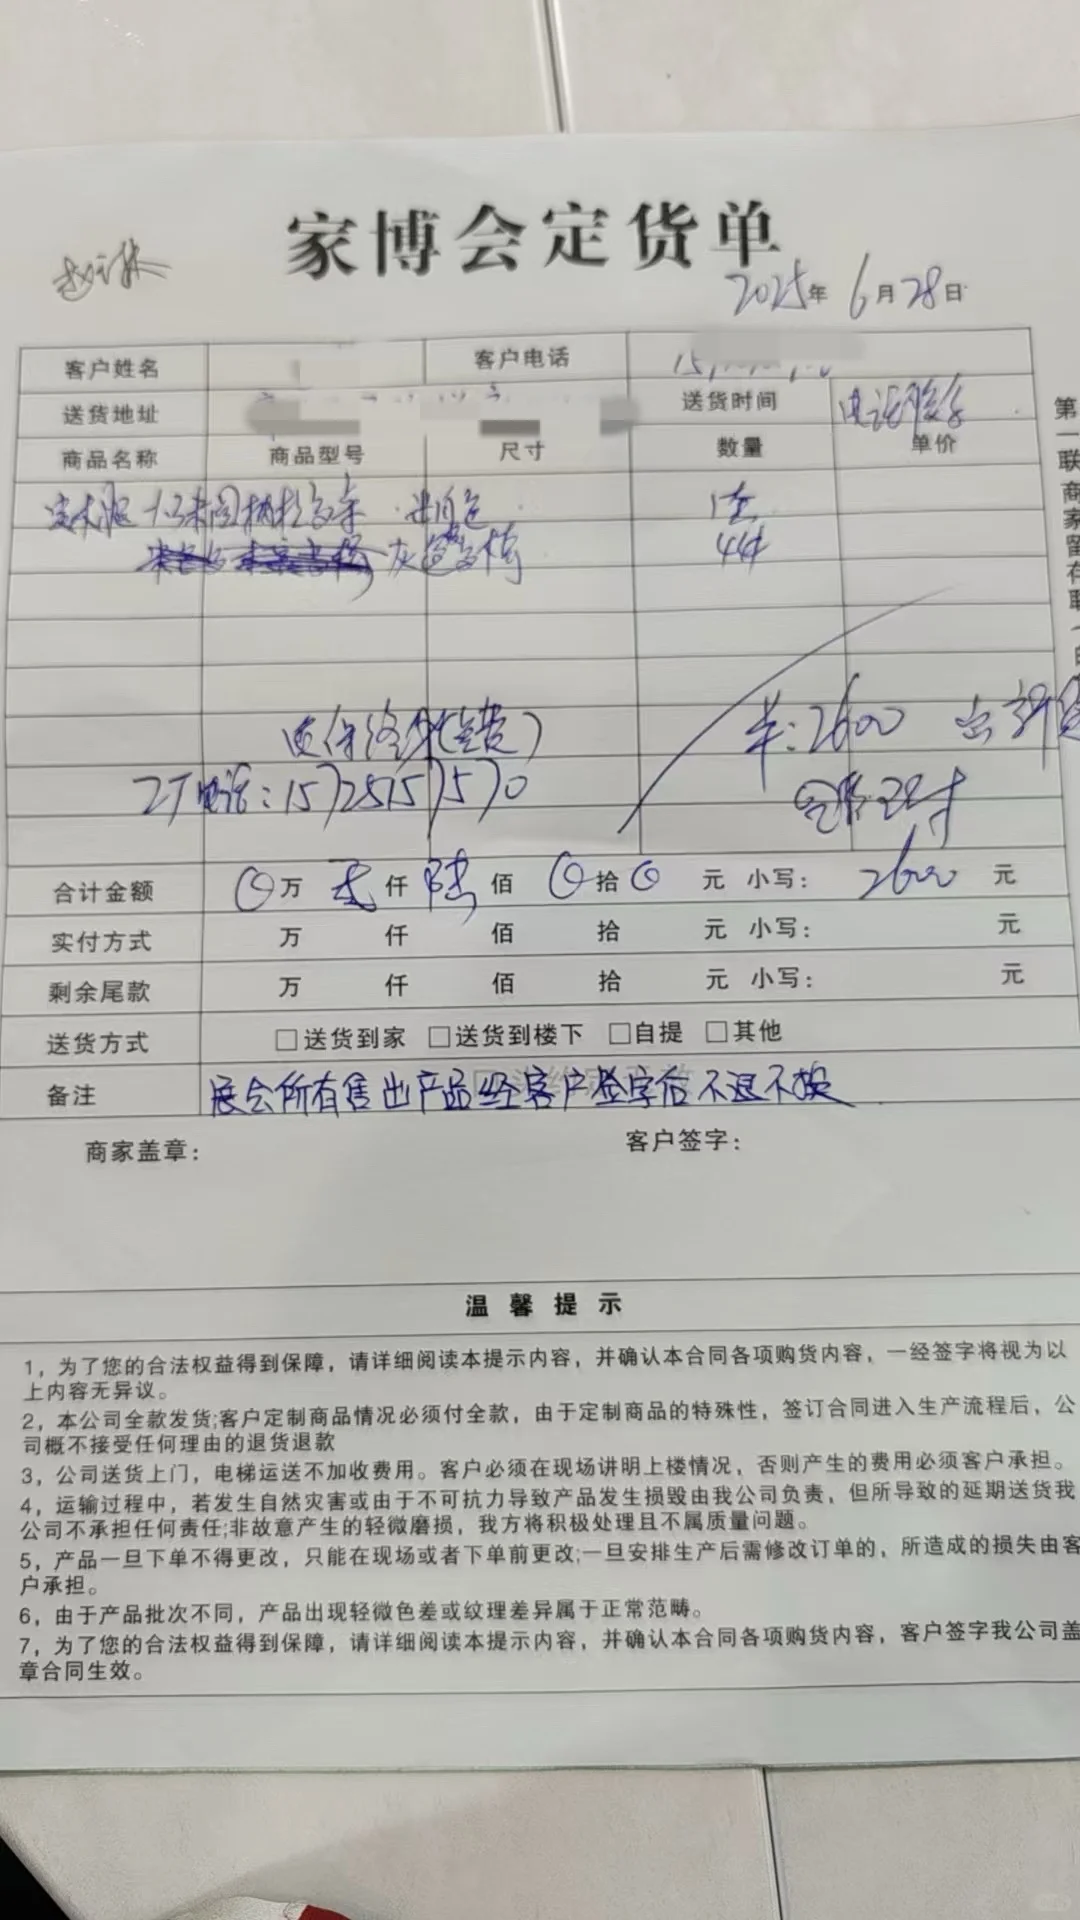 家博会定货单
2025年 6月28日
客户姓名 客户电话
送货地址 送货时间 电话
商品名称 商品型号 尺寸 数量 单价
1.3米圆 白色 1套
灰 餐椅 4件
质保终身
工厂电话：15725157570
半：2600
合计金额 0万 贰仟 陆佰 0拾 0 元 小写： 2600 元
实付方式 万 仟 佰 拾 元 小写： 元
剩余尾款 万 仟 佰 拾 元 小写： 元
送货方式 □送货到家 □送货到楼下 □自提 □其他
备注 展会所有售出产品经客户签字后不退不换
商家盖章： 客户签字：
第一联商家留存联
温馨提示
1，为了您的合法权益得到保障，请详细阅读本提示内容，并确认本合同各项购货内容，一经签字将视为以
上内容无异议。
2，本公司全款发货;客户定制商品情况必须付全款，由于定制商品的特殊性，签订合同进入生产流程后，公
司概不接受任何理由的退货退款
3，公司送货上门，电梯运送不加收费用。客户必须在现场讲明上楼情况，否则产生的费用必须客户承担。
4，运输过程中，若发生自然灾害或由于不可抗力导致产品发生损毁由我公司负责，但所导致的延期送货我
公司不承担任何责任;非故意产生的轻微磨损，我方将积极处理且不属质量问题。
5，产品一旦下单不得更改，只能在现场或者下单前更改;一旦安排生产后需修改订单的，所造成的损失由客
户承担。
6，由于产品批次不同，产品出现轻微色差或纹理差异属于正常范畴。
7，为了您的合法权益得到保障，请详细阅读本提示内容，并确认本合同各项购货内容，客户签字我公司盖
章合同生效。